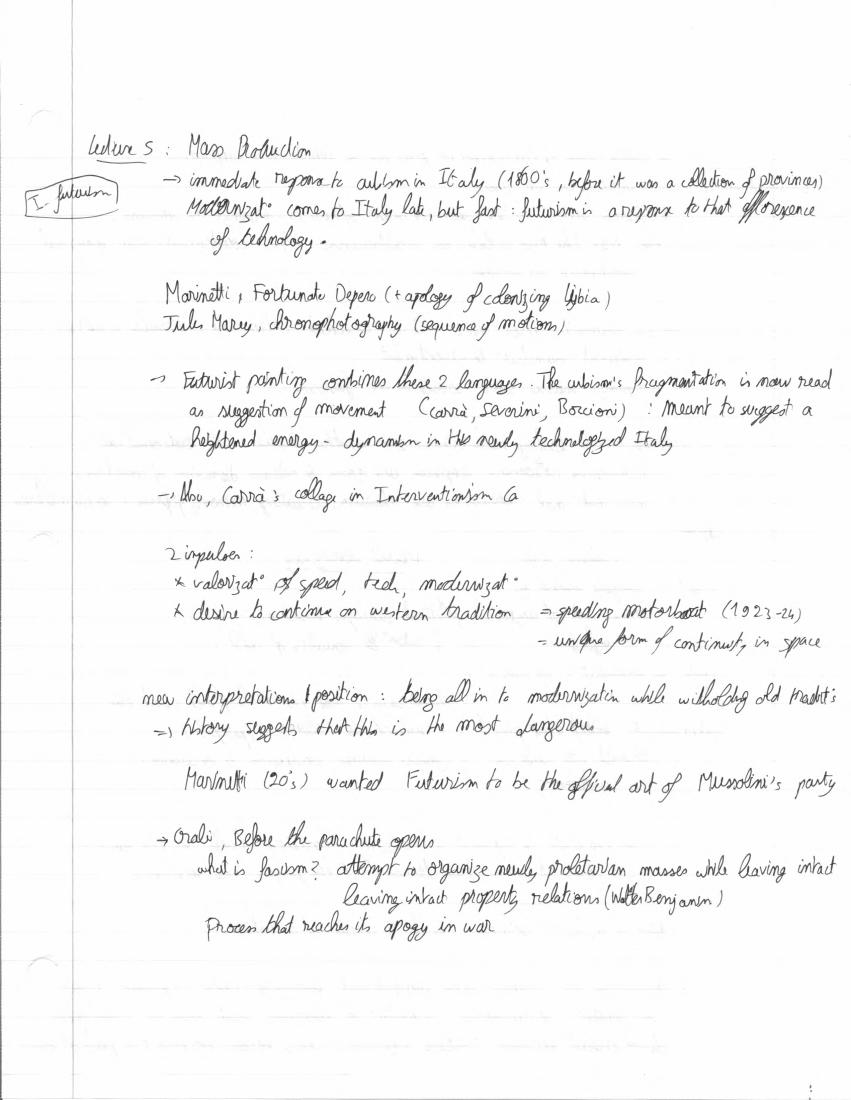 Lecture 5 : Mass Production
I. futurism
→ immediate response to cubism in Italy (1860's, before it was a collection of provinces)
Modernizat° comes to Italy late, but fast : futurism is a response to that efflorexence
of technology.
Marinetti, Fortunato Depero (+ apology of colonizing Lybia)
Jules Marey, chronophotography (sequence of motions)
→ Futurist painting combines these 2 languages. The cubism's fragmentation is now read
as suggestion of movement (Carrà, Severini, Boccioni) : meant to suggest a
heightened energy - dynamism in this newly technologized Italy
→ Also, Carrà's collage in Interventionism
2 impulses :
* valorizat° of speed, tech, modernizat°
* desire to continue on western tradition = speeding motorboat (1923-24)
= unique form of continuity in space
new interpretations / position : being all in to modernization while witholding old tradit°s
=> history suggests that this is the most dangerous
Marinetti (20's) wanted Futurism to be the official art of Mussolini's party
→ Crali, Before the parachute opens
what is fascism? attempt to organize newly proletarian masses while leaving intact
leaving intact property relations (Walter Benjamin)
Process that reaches its apogy in war